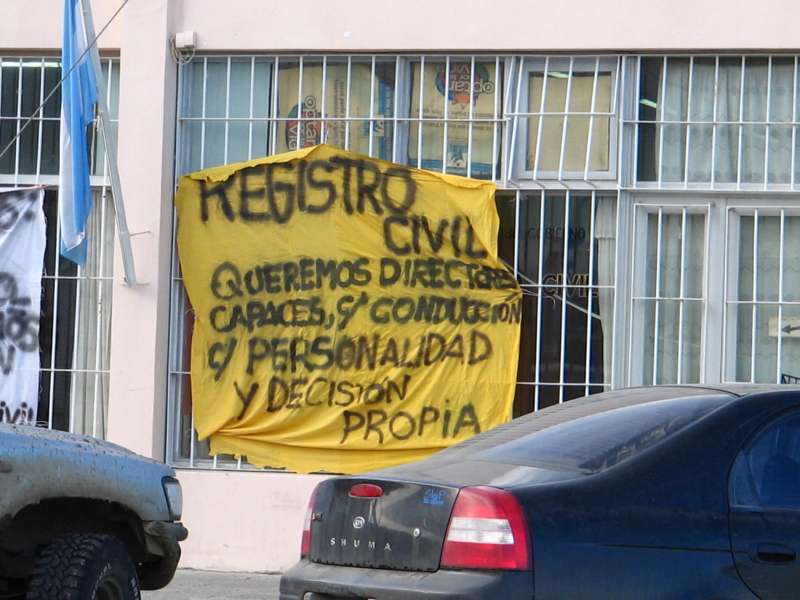 REGISTRO
CIVIL
QUEREMOS DIRECTORES
CAPACES, C/ CONDUCCIÓN
C/ PERSONALIDAD
Y DECISIÓN
PROPIA
CIVIL
SHUMA